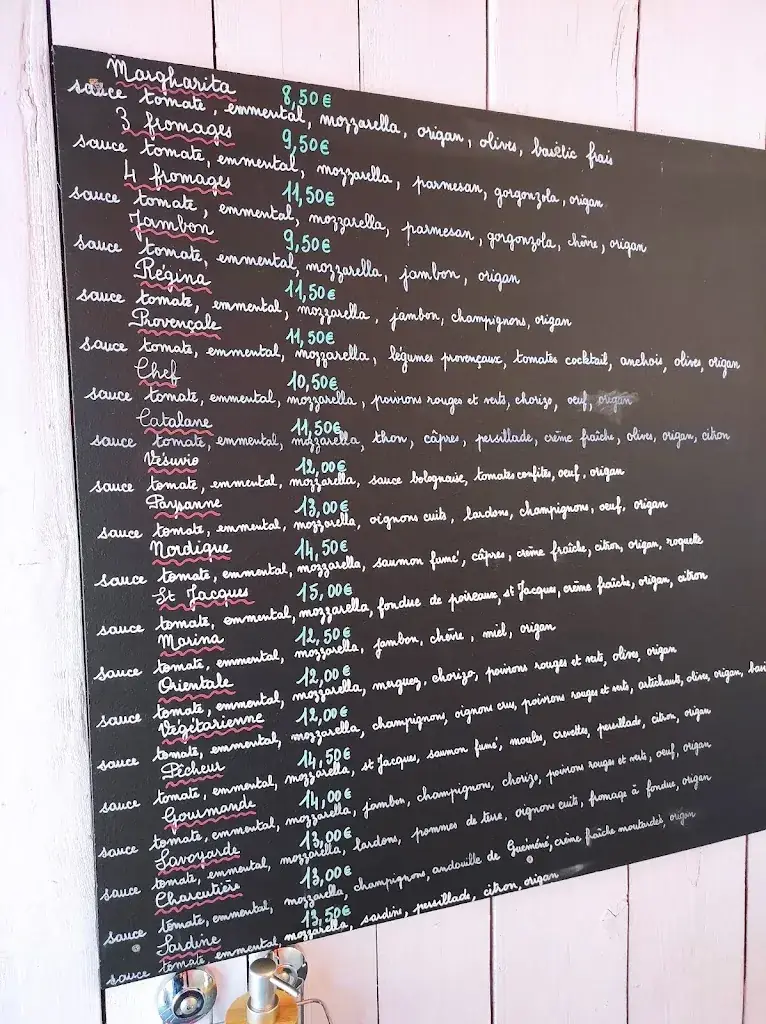 Margharita 8,50€
sauce tomate, emmental, mozzarella, origan, olives, basilic frais
3 fromages 9,50€
sauce tomate, emmental, mozzarella, parmesan, gorgonzola, origan
4 fromages 11,50€
sauce tomate, emmental, mozzarella, parmesan, gorgonzola, chèvre, origan
Jambon 9,50€
sauce tomate, emmental, mozzarella, jambon, origan
Régina 11,50€
sauce tomate, emmental, mozzarella, jambon, champignons, origan
Provençale 11,50€
sauce tomate, emmental, mozzarella, légumes provençaux, tomates cocktail, anchois, olives, origan
Chef 10,50€
sauce tomate, emmental, mozzarella, poivrons rouges et verts, chorizo, oeuf, origan
Catalane 11,50€
sauce tomate, emmental, mozzarella, thon, câpres, persillade, crème fraîche, olives, origan, citron
Vésuvio 12,00€
sauce tomate, emmental, mozzarella, sauce bolognaise, tomates confites, oeuf, origan
Paysanne 13,00€
sauce tomate, emmental, mozzarella, oignons cuits, lardons, champignons, oeuf, origan
Nordique 14,50€
sauce tomate, emmental, mozzarella, saumon fumé, câpres, crème fraîche, citron, origan, roquette
St Jacques 15,00€
sauce tomate, emmental, mozzarella, fondue de poireaux, st Jacques, crème fraîche, origan, citron
Marina 12,50€
sauce tomate, emmental, mozzarella, jambon, chèvre, miel, origan
Orientale 12,00€
sauce tomate, emmental, mozzarella, merguez, chorizo, poivrons rouges et verts, olives, origan
Végétarienne 12,00€
sauce tomate, emmental, mozzarella, champignons, oignons crus, poivrons rouges et verts, artichauts, olives, origan, basi
Pêcheur 14,50€
sauce tomate, emmental, mozzarella, st Jacques, saumon fumé, moules, crevettes, persillade, citron, origan
Gourmande 14,00€
sauce tomate, emmental, mozzarella, jambon, champignons, chorizo, poivrons rouges et verts, oeuf, origan
Savoyarde 13,00€
sauce tomate, emmental, mozzarella, lardons, pommes de terre, oignons cuits, fromage à fondue, origan
Charcutière 13,00€
sauce tomate, emmental, mozzarella, champignons, andouille de Guéméné, crème fraîche moutardée, origan
Sardine 13,50€
sauce tomate, emmental, mozzarella, sardine, persillade, citron, origan